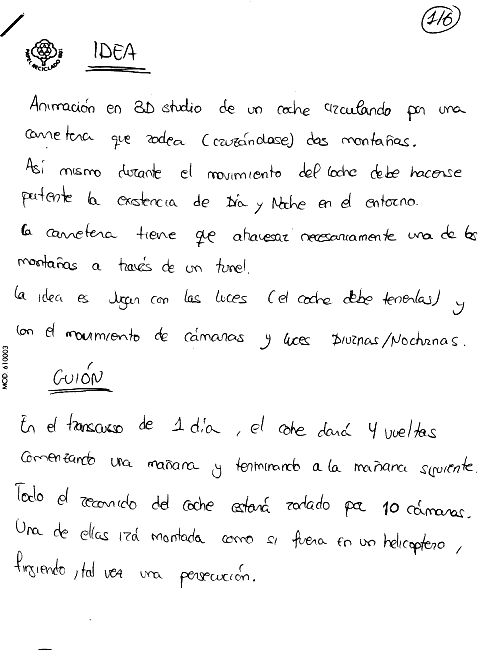 1/6
IDEA
Animación en 3D studio de un coche circulando por una
carretera que rodea (cruzándose) dos montañas.
Así mismo durante el movimiento del coche debe hacerse
patente la existencia de Día y Noche en el entorno.
La carretera tiene que atravesar necesariamente una de las
montañas a través de un tunel.
La idea es jugar con las luces (el coche debe tenerlas) y
con el movimiento de cámaras y luces Diurnas/Nocturnas.
MOD. 610003
GUIÓN
En el transcurso de 1 día, el coche dará 4 vueltas
Comenzando una mañana y terminando a la mañana siguiente.
Todo el recorrido del coche estará rodado por 10 cámaras.
Una de ellas irá montada como si fuera en un helicoptero,
fingiendo, tal vez una persecución.